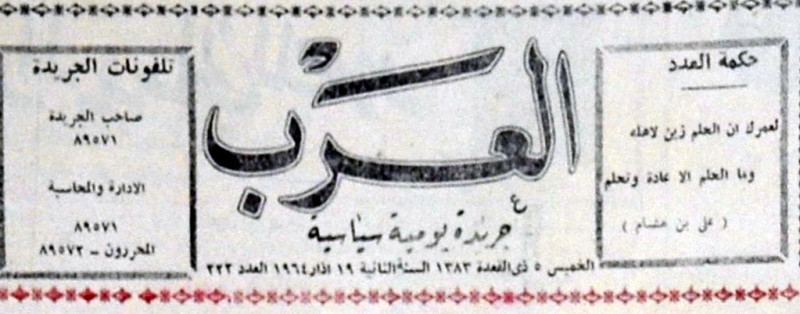 حكمة العدد
لعمرك ان الحلم زين لاهله
وما الحلم الا عادة وتحلم
( علي بن هشام )
العرب
جريدة يومية سياسية
الخميس ٥ ذي القعدة ١٣٨٣ السنة الثانية ١٩ اذار ١٩٦٤ العدد ٢٢٣
تلفونات الجريدة
صاحب الجريدة
٨٩٥٧١
الادارة والمحاسبة
٨٩٥٧١
المحررون - ٨٩٥٧٢